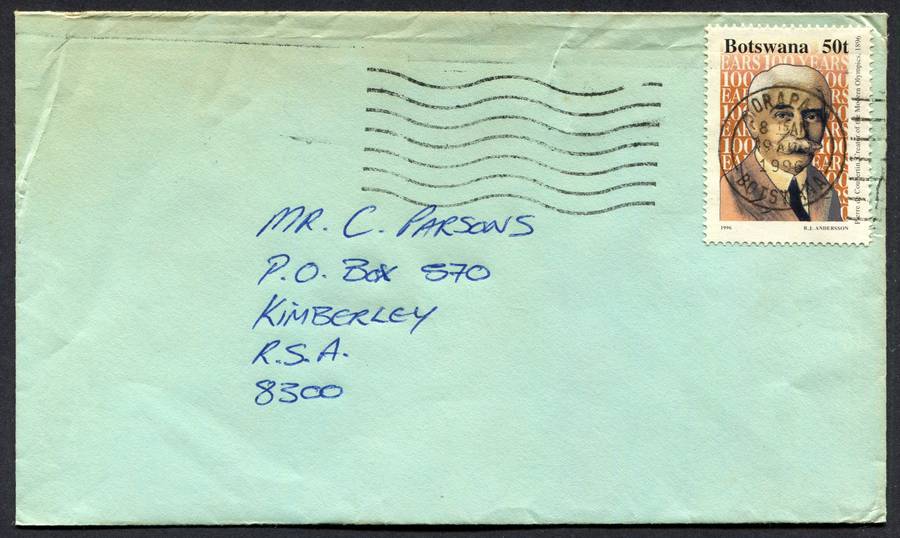 Botswana 50t
EARS 100 YEARS
100
Pierre de Coubertin, Creator of the Modern Olympics, 1896
ORAPA
8
1996
BOTSWANA
1996 B.J. ANDERSSON
MR. C. PARSONS
P.O. BOX 870
KIMBERLEY
R.S.A.
8300